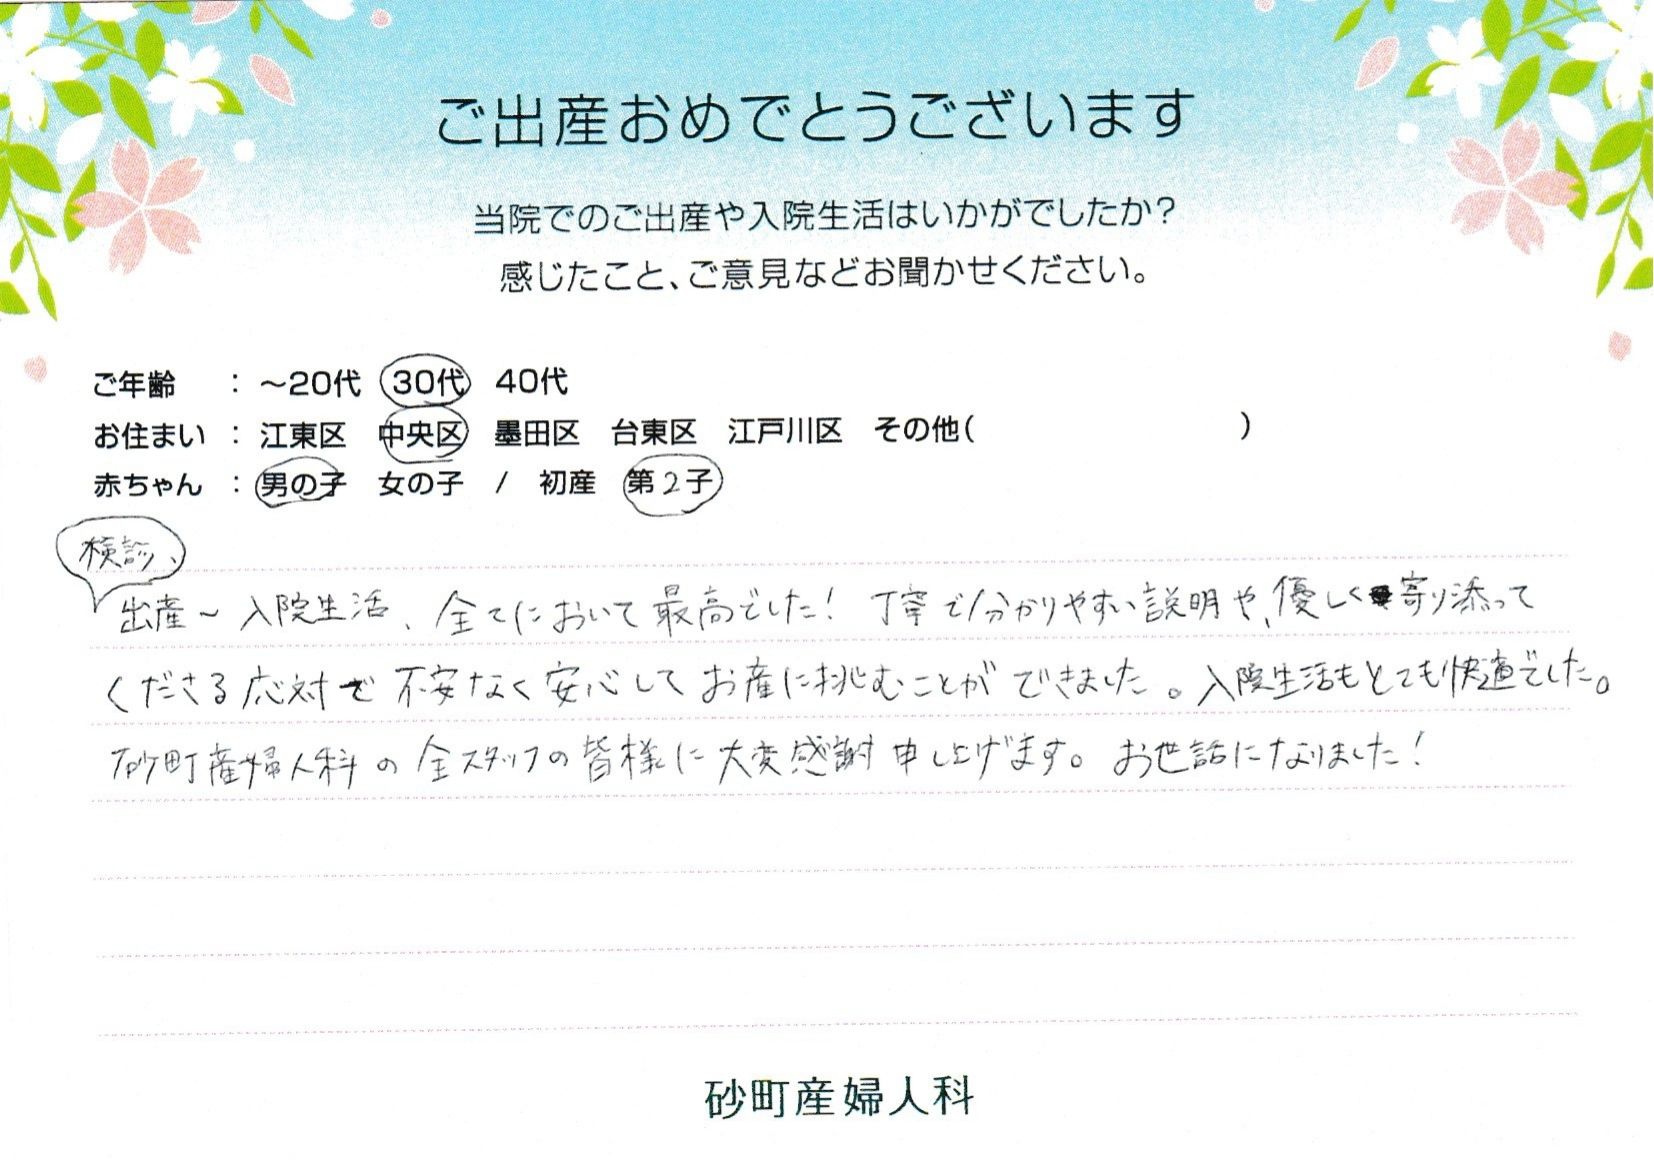 ご出産おめでとうございます
当院でのご出産や入院生活はいかがでしたか?
感じたこと、ご意見などお聞かせください。
ご年齢 : ~20代 30代 40代
お住まい : 江東区 中央区 墨田区 台東区 江戸川区 その他( )
赤ちゃん : 男の子 女の子 / 初産 第2子
検診、
出産~入院生活、全てにおいて最高でした!丁寧で分かりやすい説明や、優しく寄り添って
くださる応対で不安なく安心してお産に挑むことができました。入院生活もとても快適でした。
砂町産婦人科の全スタッフの皆様に大変感謝申し上げます。お世話になりました!
砂町産婦人科